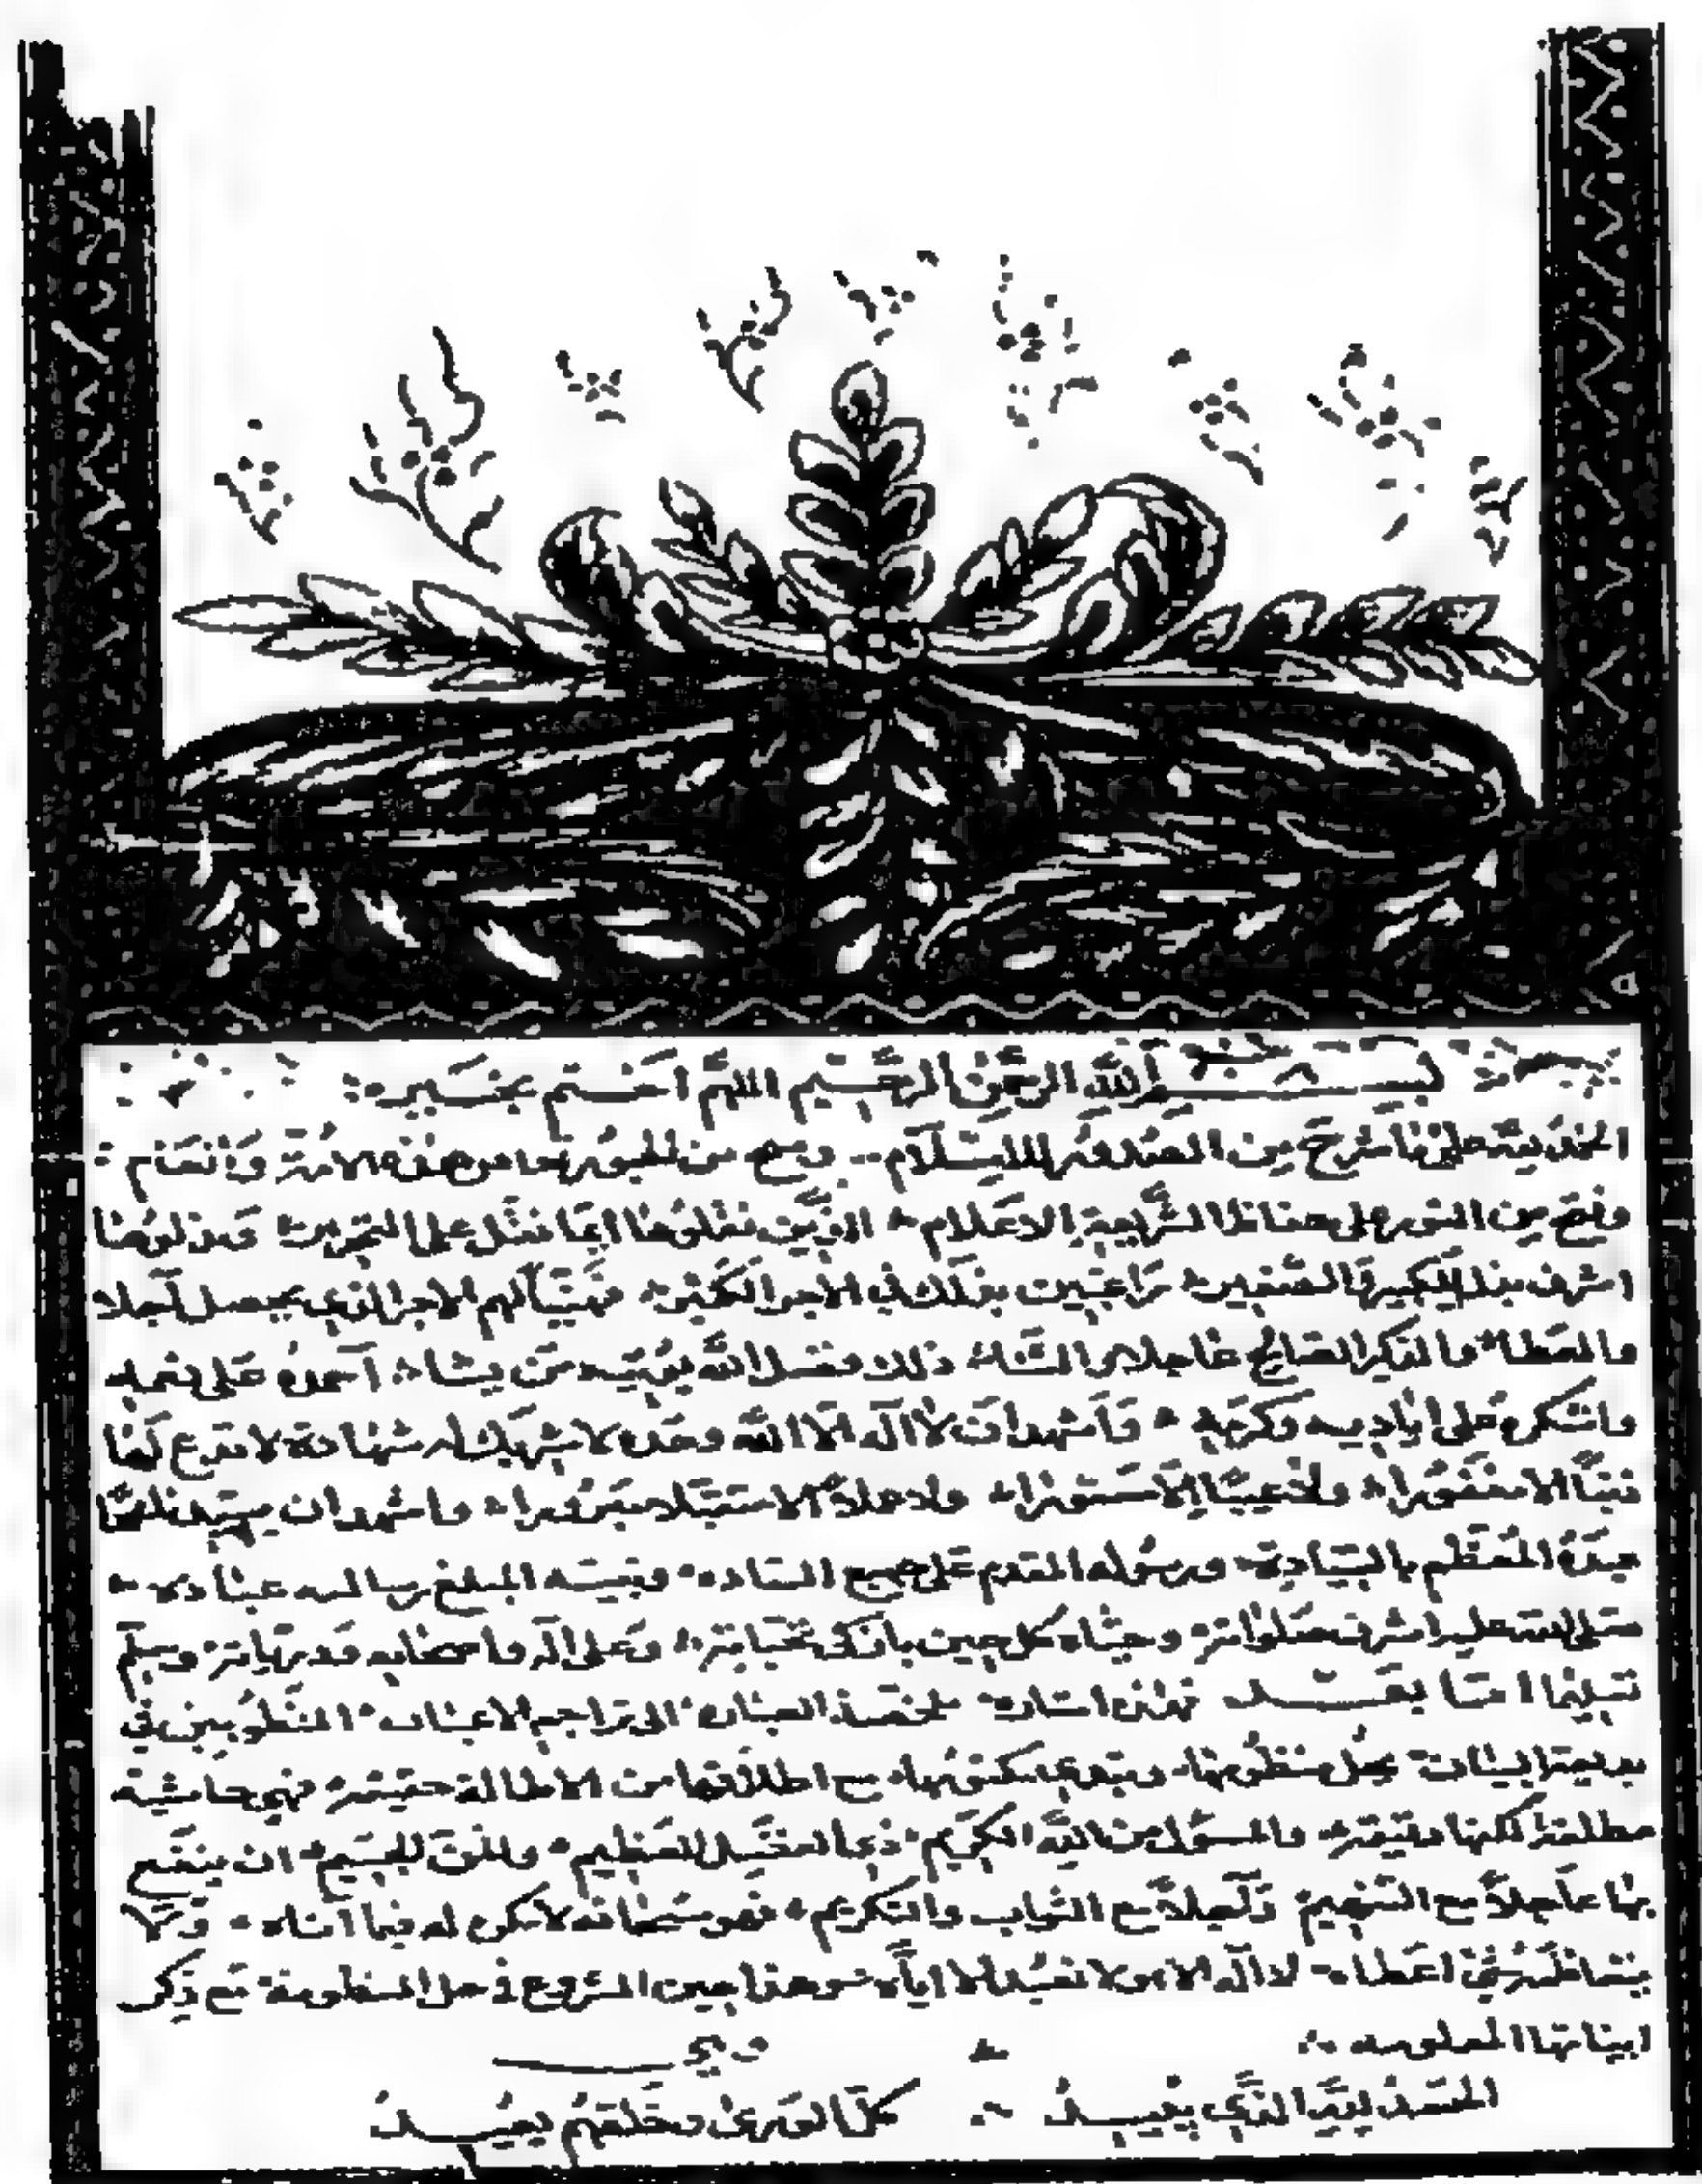 بسم الله الرحمن الرحيم اللهم اختم بخير
الحمد لله على ما شرح من الصدور للاسلام ومنح من هذه الامة وانعام
وفتح من النور على حفاظ الشريعة الاعلام الذين نقلوها ايما نقل على التحرير وبذلوها
اشرف بذل للكبير والصغير راغبين بذلك في الاجر الكثير فهنيئا لهم الاجر الذي يحصل آجلا
والعطا والذكر الشايع عاجلا والثناء ذلك فضل الله يؤتيه من يشاء احمده على نعمه
واشكره على اياديه وكرمه واشهد ان لا اله الا الله وحده لا شريك له شهادة لا تدع لنا
ذنبا الا مغفورا ولا عيبا الا مستورا ولا عملا الا متقبلا مبرورا واشهد ان سيدنا محمدا
عبده المعظم بالسيادة ورسوله المقدم على جميع السادة ونبيه المبلغ رسالته عباده
صلى الله عليه اشرف صلواته وحياه كل حين بازكى تحياته وعلى اله واصحابه وذرياته وسلم
تسليما اما بعد فهذه اشارة ملخصة العبارة الى تراجم الاعيان المنظومين في
بديعة البيان بحل منظومها ويبدي مكتومها مع اطلاقها من الاطالة حقيقة فهي حاشية
مطلقة لكنها دقيقة والمسؤل من الله الكريم ذي الفضل العظيم والمن الجسيم ان ينفع
بها عاجلا مع التفهيم وآجلا مع الثواب والتكريم فهو سبحانه لا مكره له فيما اتاه ولا
يتعاظمه شئ اعطاه لا اله الا هو لا نعبد الا اياه وهذا حين الشروع في حل المنظومة مع ذكر
ابياتها المعلومه
وهي
الحمد لله الذي يبيد كل الورى وخلقهم يعيد